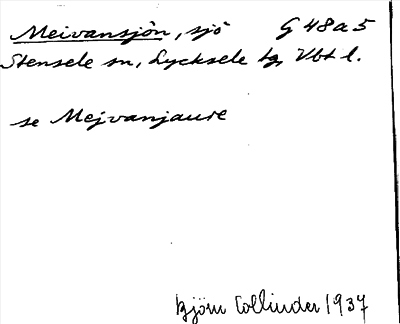 Meivansjön, sjö G 48 a 5
Stensele sn, Lycksele tg, Vbt l.
se Mejvanjaure
Björn Collinder 1937